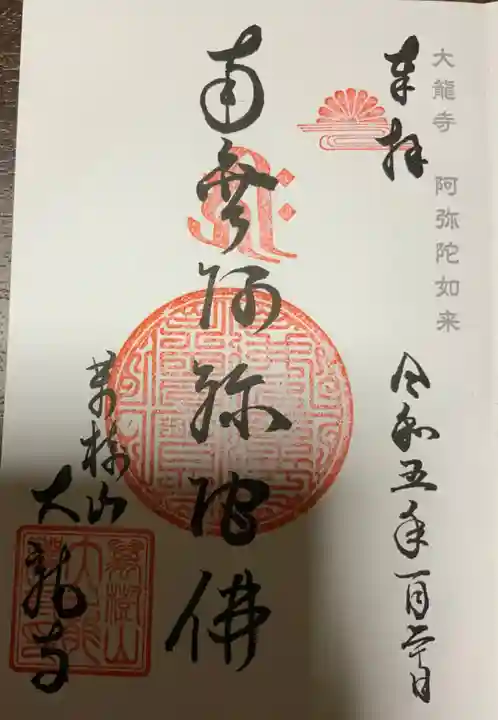 大龍寺 阿弥陀如来
奉拝
令和五年一月二日
南無阿弥陀佛
萬樹山
大龍寺